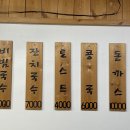 비빔국수
잔치국수
7000
토스트
4000
콩국
6000
돈까스